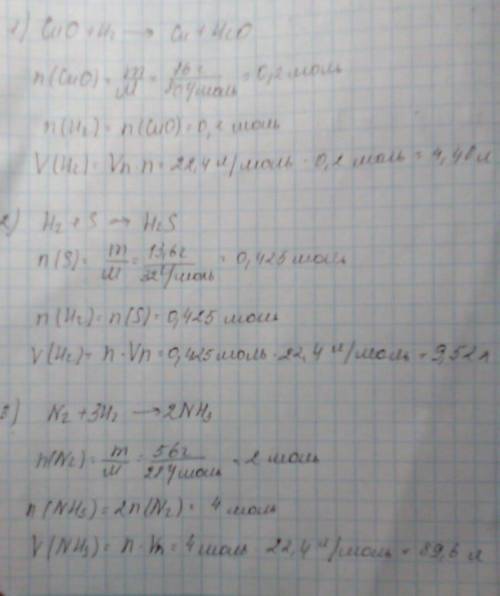 1) CuO + H₂ → Cu + H₂O
n(CuO) = m/M = 16г/80г/моль = 0,2 моль
n(H₂) = n(CuO) = 0,2 моль
V(H₂) = Vn · n = 22,4 л/моль · 0,2 моль = 4,48 л
2) H₂ + S → H₂S
n(S) = m/M = 13,6г/32г/моль = 0,425 моль
n(H₂) = n(S) = 0,425 моль
V(H₂) = n · Vn = 0,425 моль · 22,4 л/моль = 9,52 л
3) N₂ + 3H₂ → 2NH₃
n(N₂) = m/M = 56г/28г/моль = 2 моль
n(NH₃) = 2n(N₂) = 4 моль
V(NH₃) = n · Vm = 4 моль · 22,4 л/моль = 89,6 л